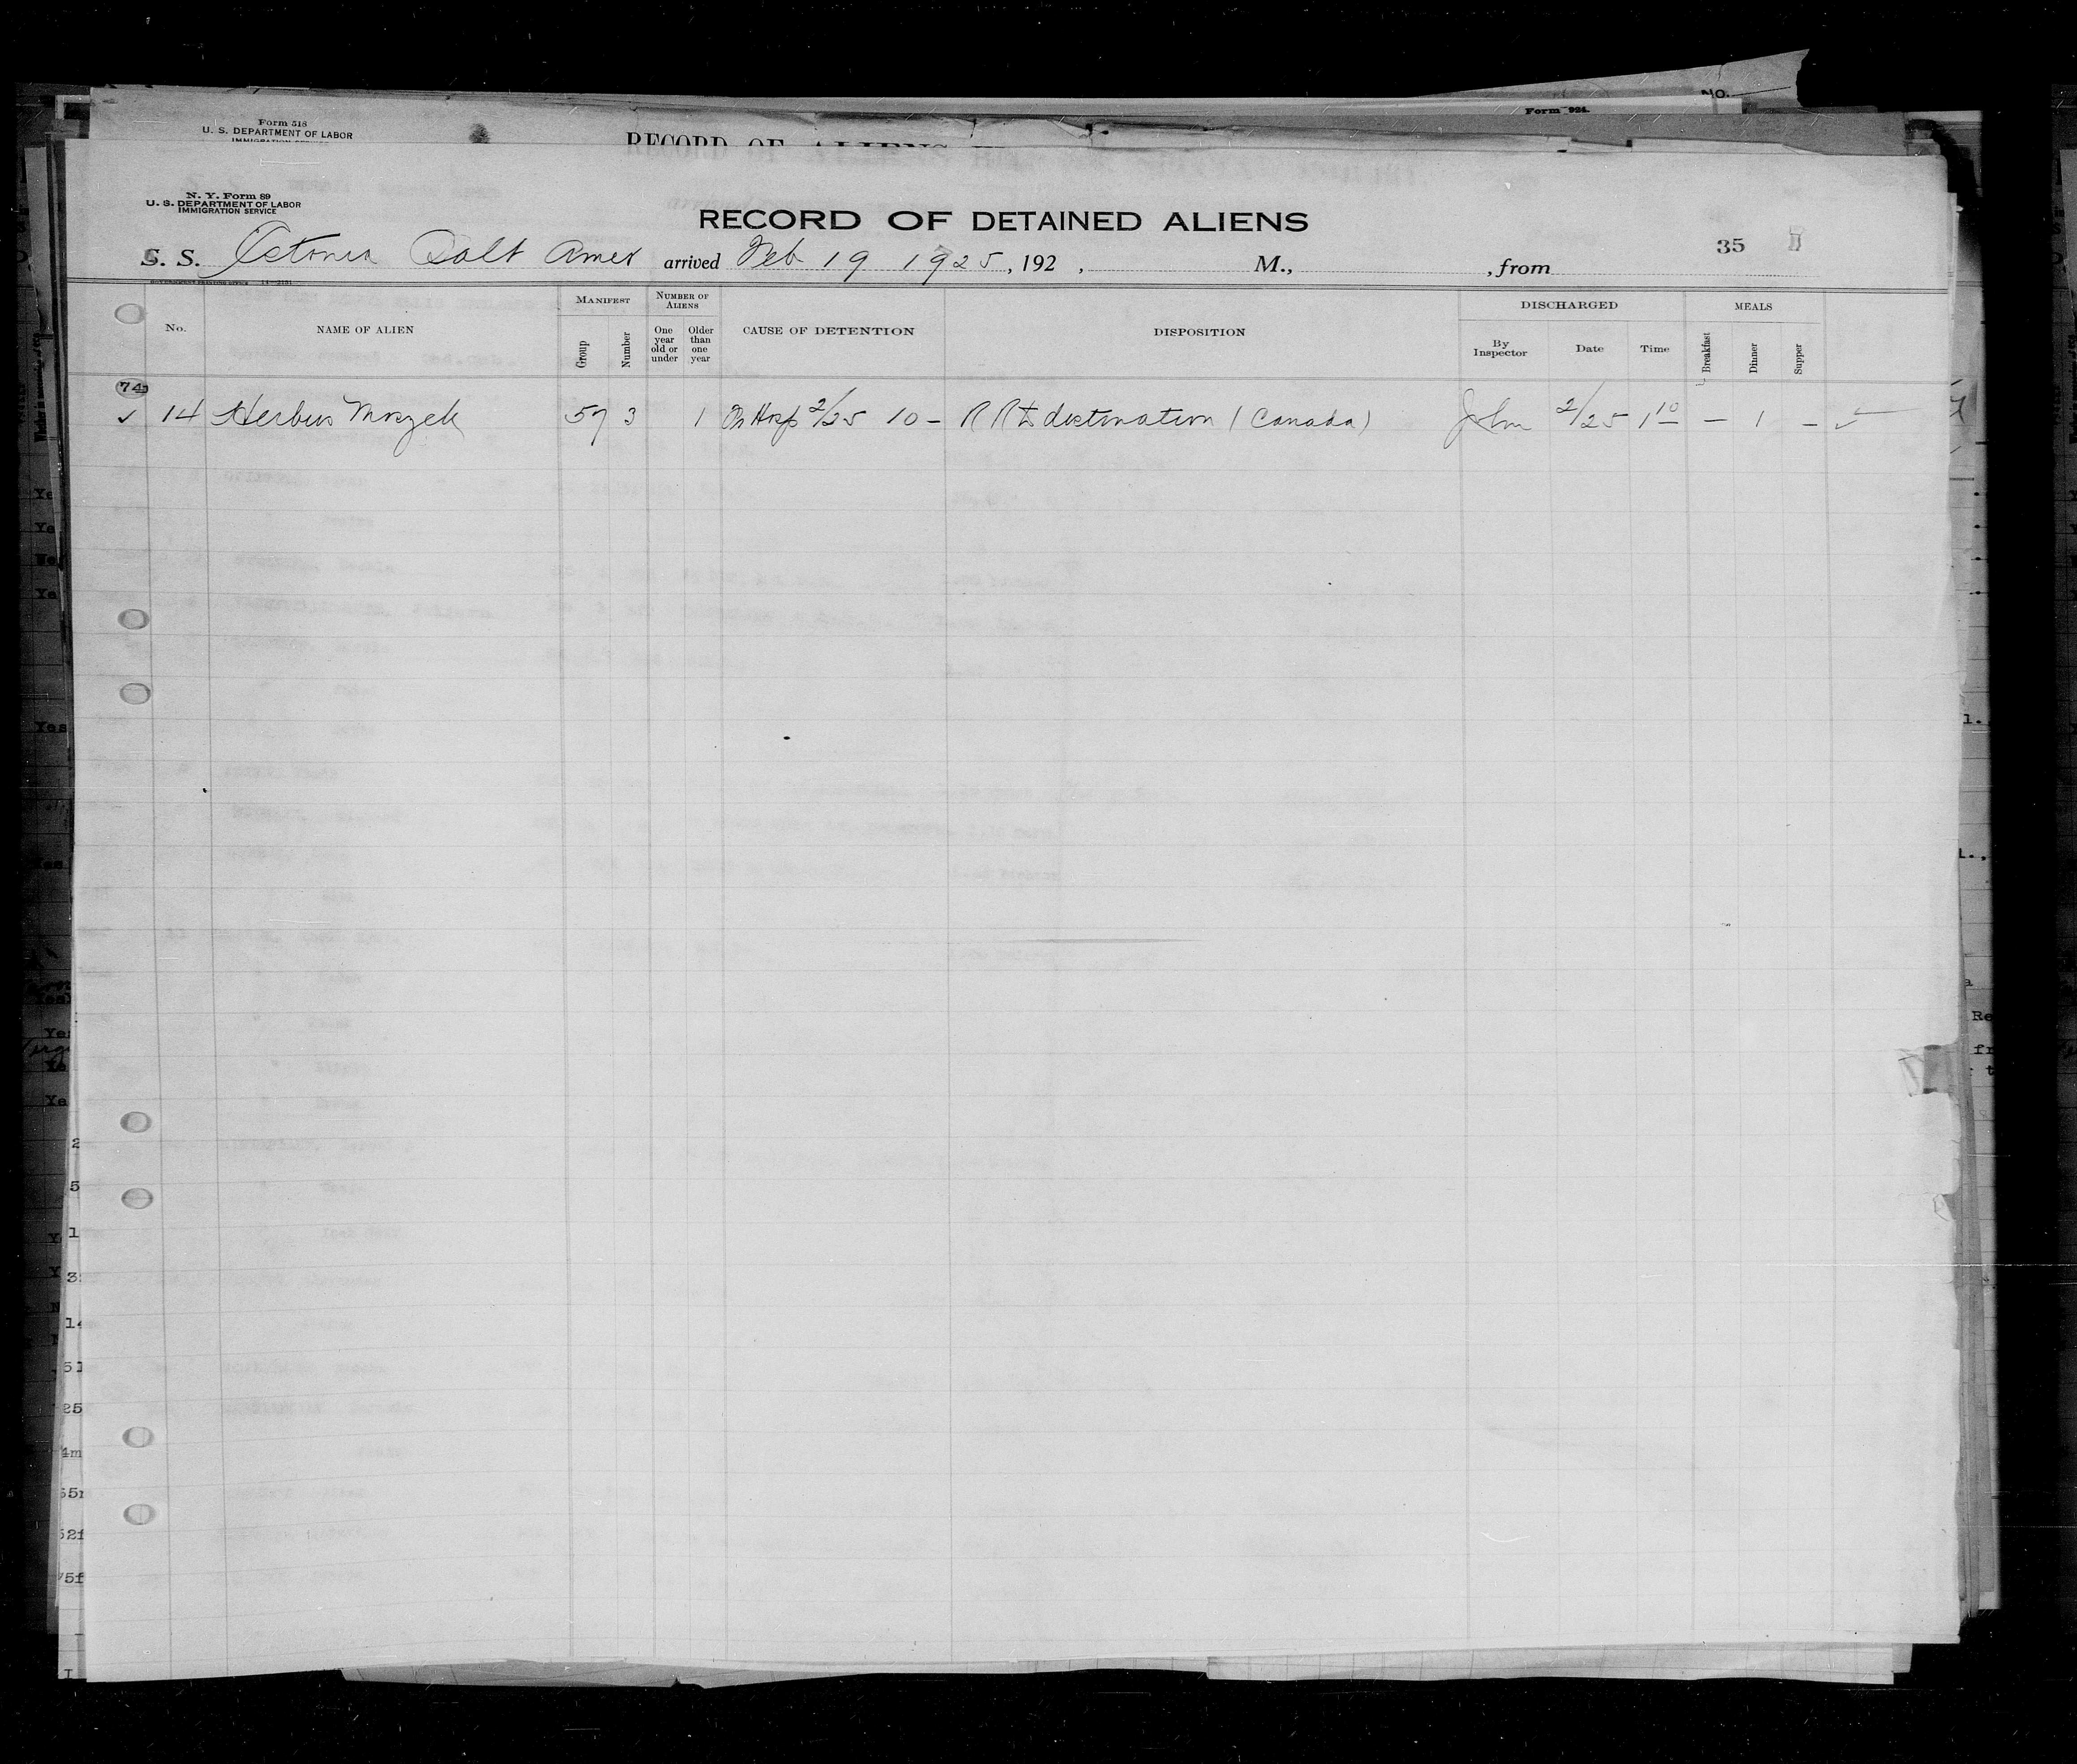 No.
Form 924.
Form 518
U. S. DEPARTMENT OF LABOR
RECORD OF ALIENS
N. Y. Form 89
U. S. DEPARTMENT OF LABOR
IMMIGRATION SERVICE
RECORD OF DETAINED ALIENS
35
S. S. Estonia Balt Amer arrived Feb 19 1925, 192 , M., , from
GOVERNMENT PRINTING OFFICE
No.
NAME OF ALIEN
MANIFEST
Group
Number
NUMBER OF ALIENS
One year old or under
Older than one year
CAUSE OF DETENTION
DISPOSITION
DISCHARGED
By Inspector
Date
Time
MEALS
Breakfast
Dinner
Supper
74
✓ 14 57 3 1 Hosp 2/25 10 – R R to destination (Canada) 2/25 1 10 – 1 – ✓